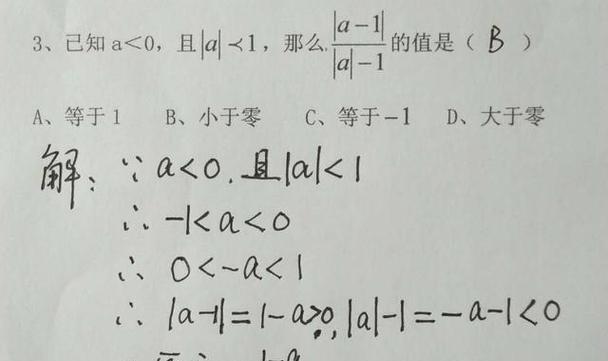 3、已知 a<0，且|a|<1，那么 |a-1|/|a|-1 的值是（ B ）
A、等于 1 B、小于零 C、等于-1 D、大于零
解：∵ a<0，且|a|<1
∴ -1<a<0
∴ 0<-a<1
∴ |a-1|=1-a>0，|a|-1=-a-1<0